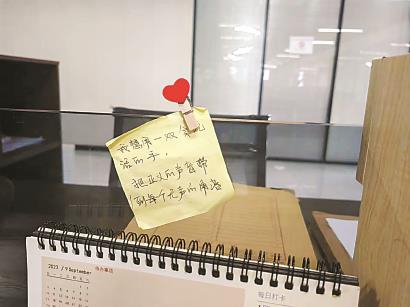 我想用一双会说
话的手，
把正义的声音带
到每个无声的角落
2023 / 9 September
待办事项
每日打卡